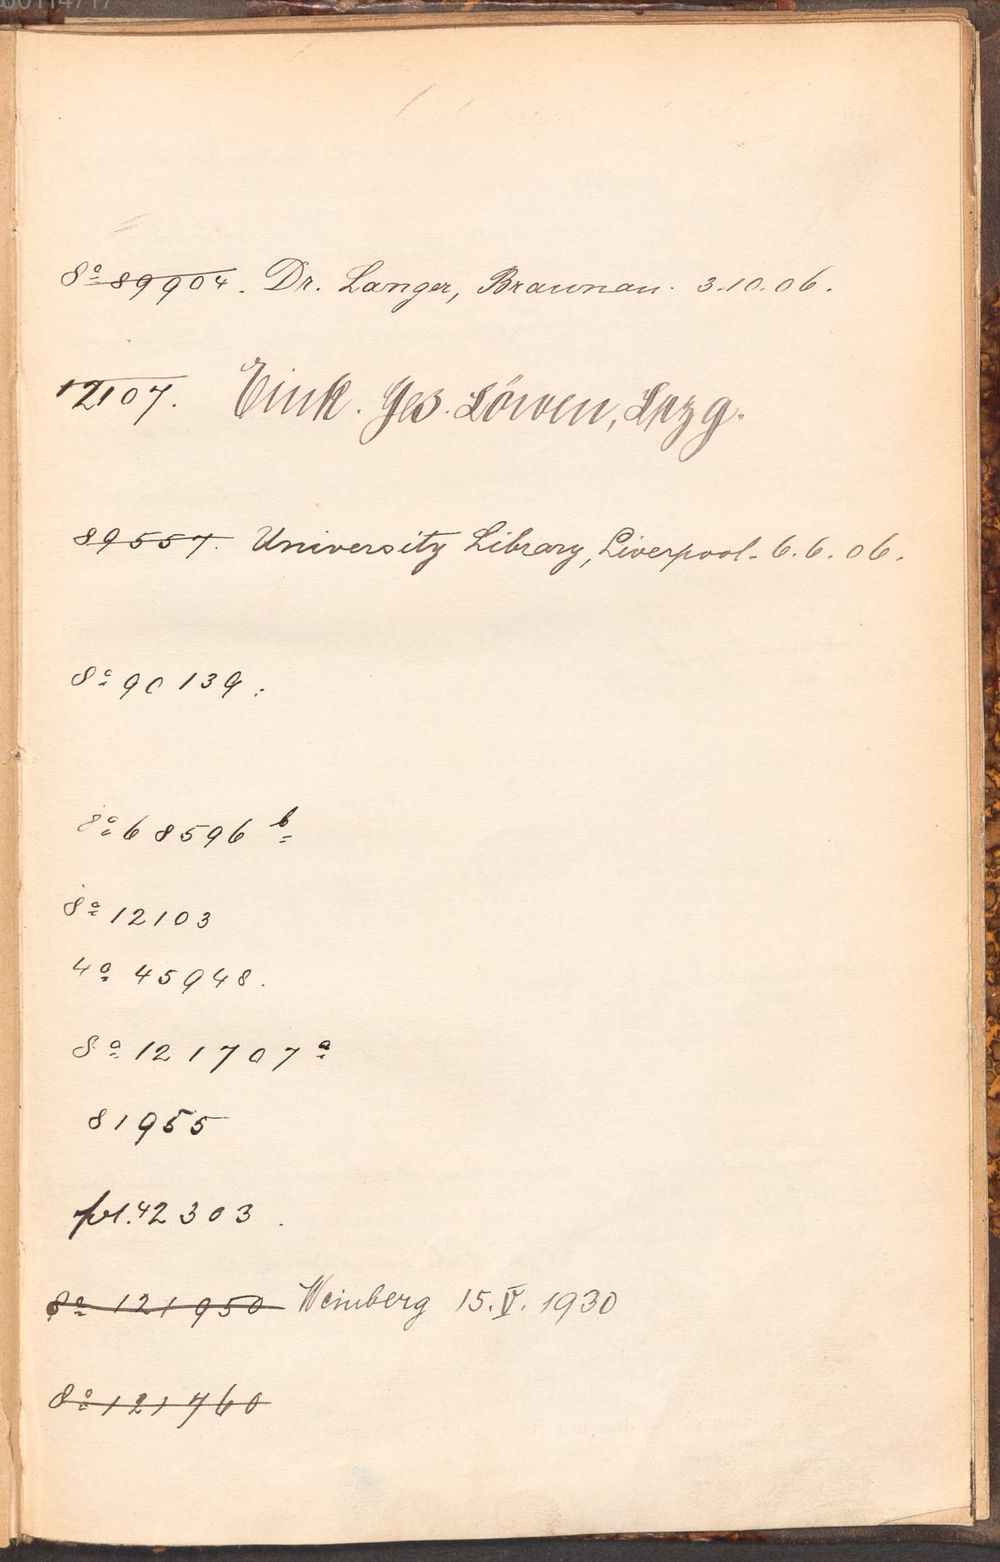 8º 89904. Dr. Langer, Braunau. 3.10.06.
12107. Eink. Ges. Löwen, Lpzg.
89557. University Library, Liverpool. 6.6.06.
8º 90139.
8º 68596 b
8º 12103
4º 45948.
8º 121707 a
81955
fol. 42303.
8º 121950 Weinberg 15.V.1930
8º 121760